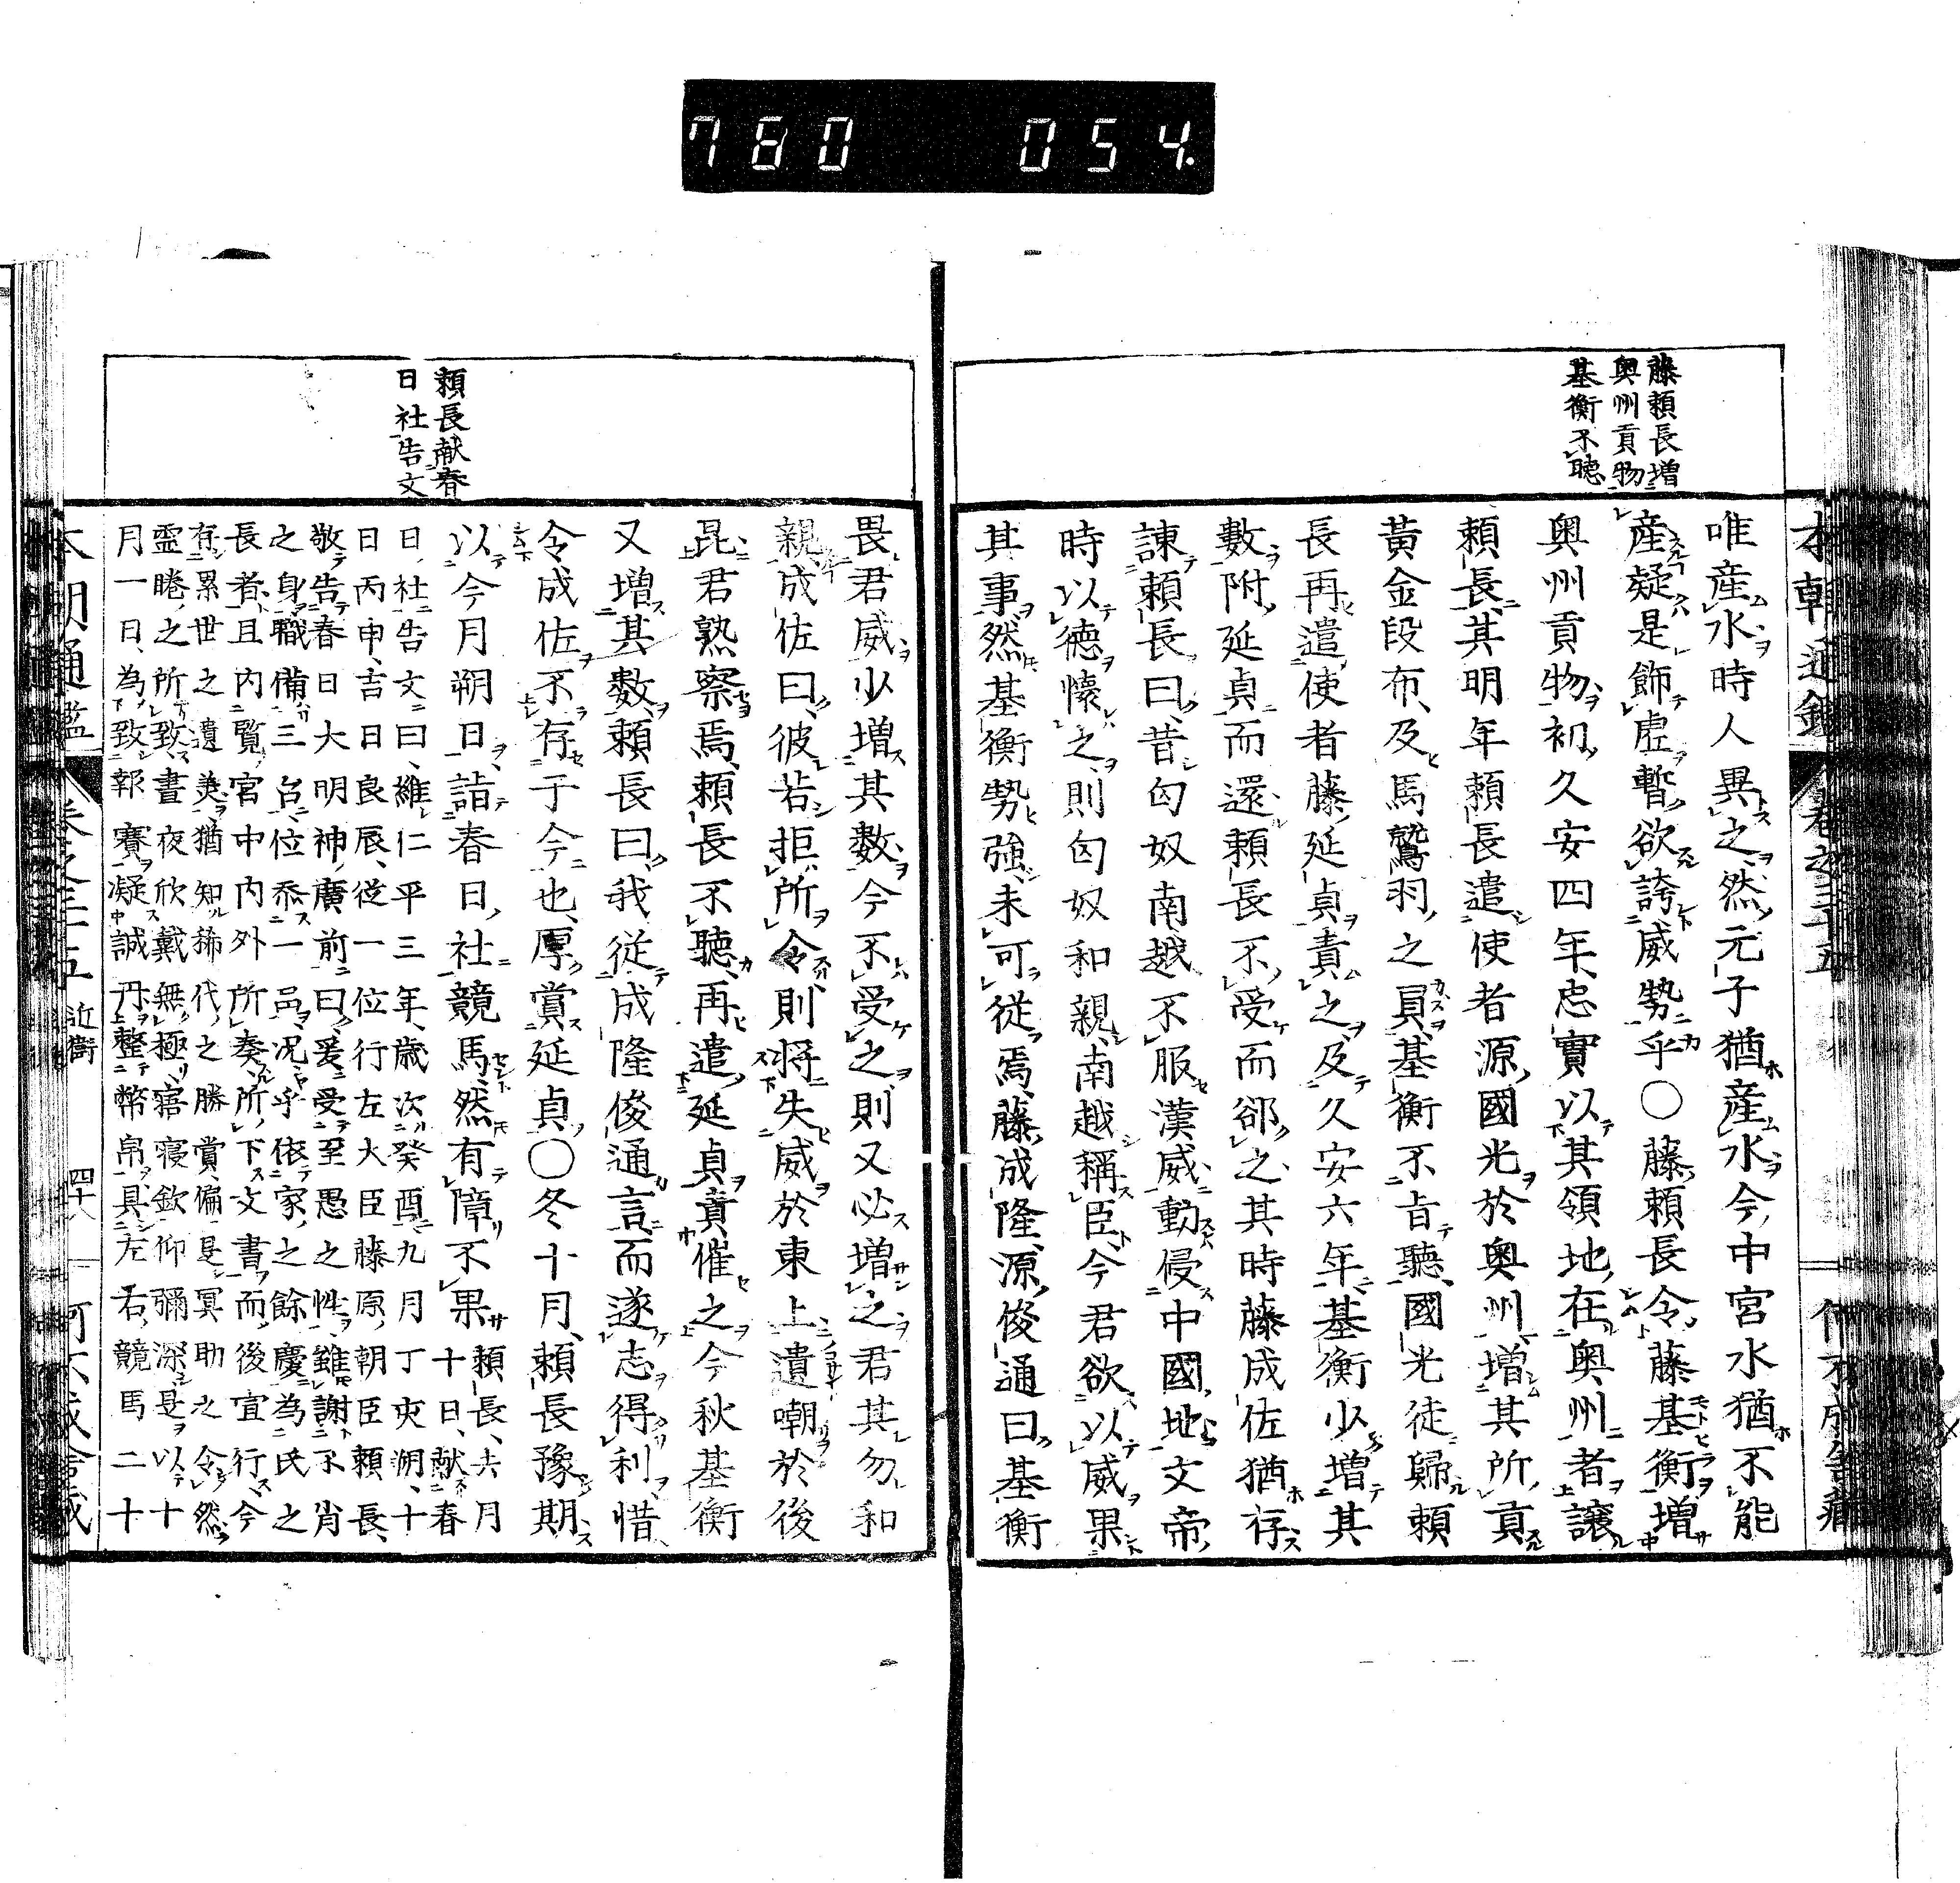 780 054
藤頼長増
奥州貢物
基衡不聽
唯産水時人異之然元子猶産水今中宮水猶不能
産疑是飾虚暫欲誇威勢乎〇藤頼長令藤基衡増
奥州貢物初久安四年忠實以其領地在奥州者譲
頼長其明年頼長遣使者源國光於奥州増其所貢
黃金段布及馬鷲羽之員基衡不肯聽國光徒歸頼
長再遣使者藤延貞責之及久安六年基衡少増其
數附延貞而還頼長不受而郤之其時藤成佐猶存
諌頼長曰昔匈奴南越不服漢威動侵中國地文帝
時以德懐之則匈奴和親南越稱臣今君欲以威果
其事然基衡勢強未可従焉藤成隆源俊通曰基衡
頼長献春
日社告文
畏君威少増其數今不受之則又必増之君其勿和
親成佐曰彼若拒所令則將失威於東上遺嘲於後
昆君熟察焉頼長不聽再遣延貞責催之今秋基衡
又増其數頼長曰我従成隆俊通言而遂志得利惜
令成佐不存于今也厚賞延貞〇冬十月頼長豫期
以今月朔日詣春日社競馬然有障不果頼長去月
十日献春
日社告文曰維仁平三年歳次癸酉九月丁亥朔十
日丙申吉日良辰従一位行左大臣藤原朝臣頼長
敬告春日大明神廣前曰爰受至愚之性雖謝不肖
之身職備三台位忝一邑况乎依家之餘慶為氏之
長者且内覽宮中内外所奏所下文書而後宜行今
有累世之遺美猶知稀代之勝賞偏是冥助之令然
靈睠之所致晝夜欣戴無極寤寝欽仰彌深是以十
月一日為致報賽凝誠丹整幣帛具左右競馬二十
本朝通鑑 卷之三十五 近衛 四十八